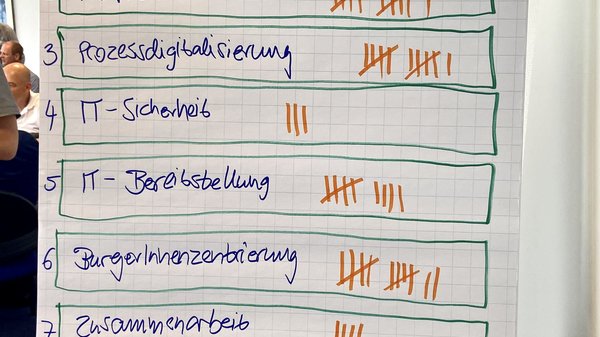 3 Prozessdigitalisierung
4 IT-Sicherheit
5 IT-Bereitstellung
6 BürgerInnenzentrierung
7 Zusammenarbeit